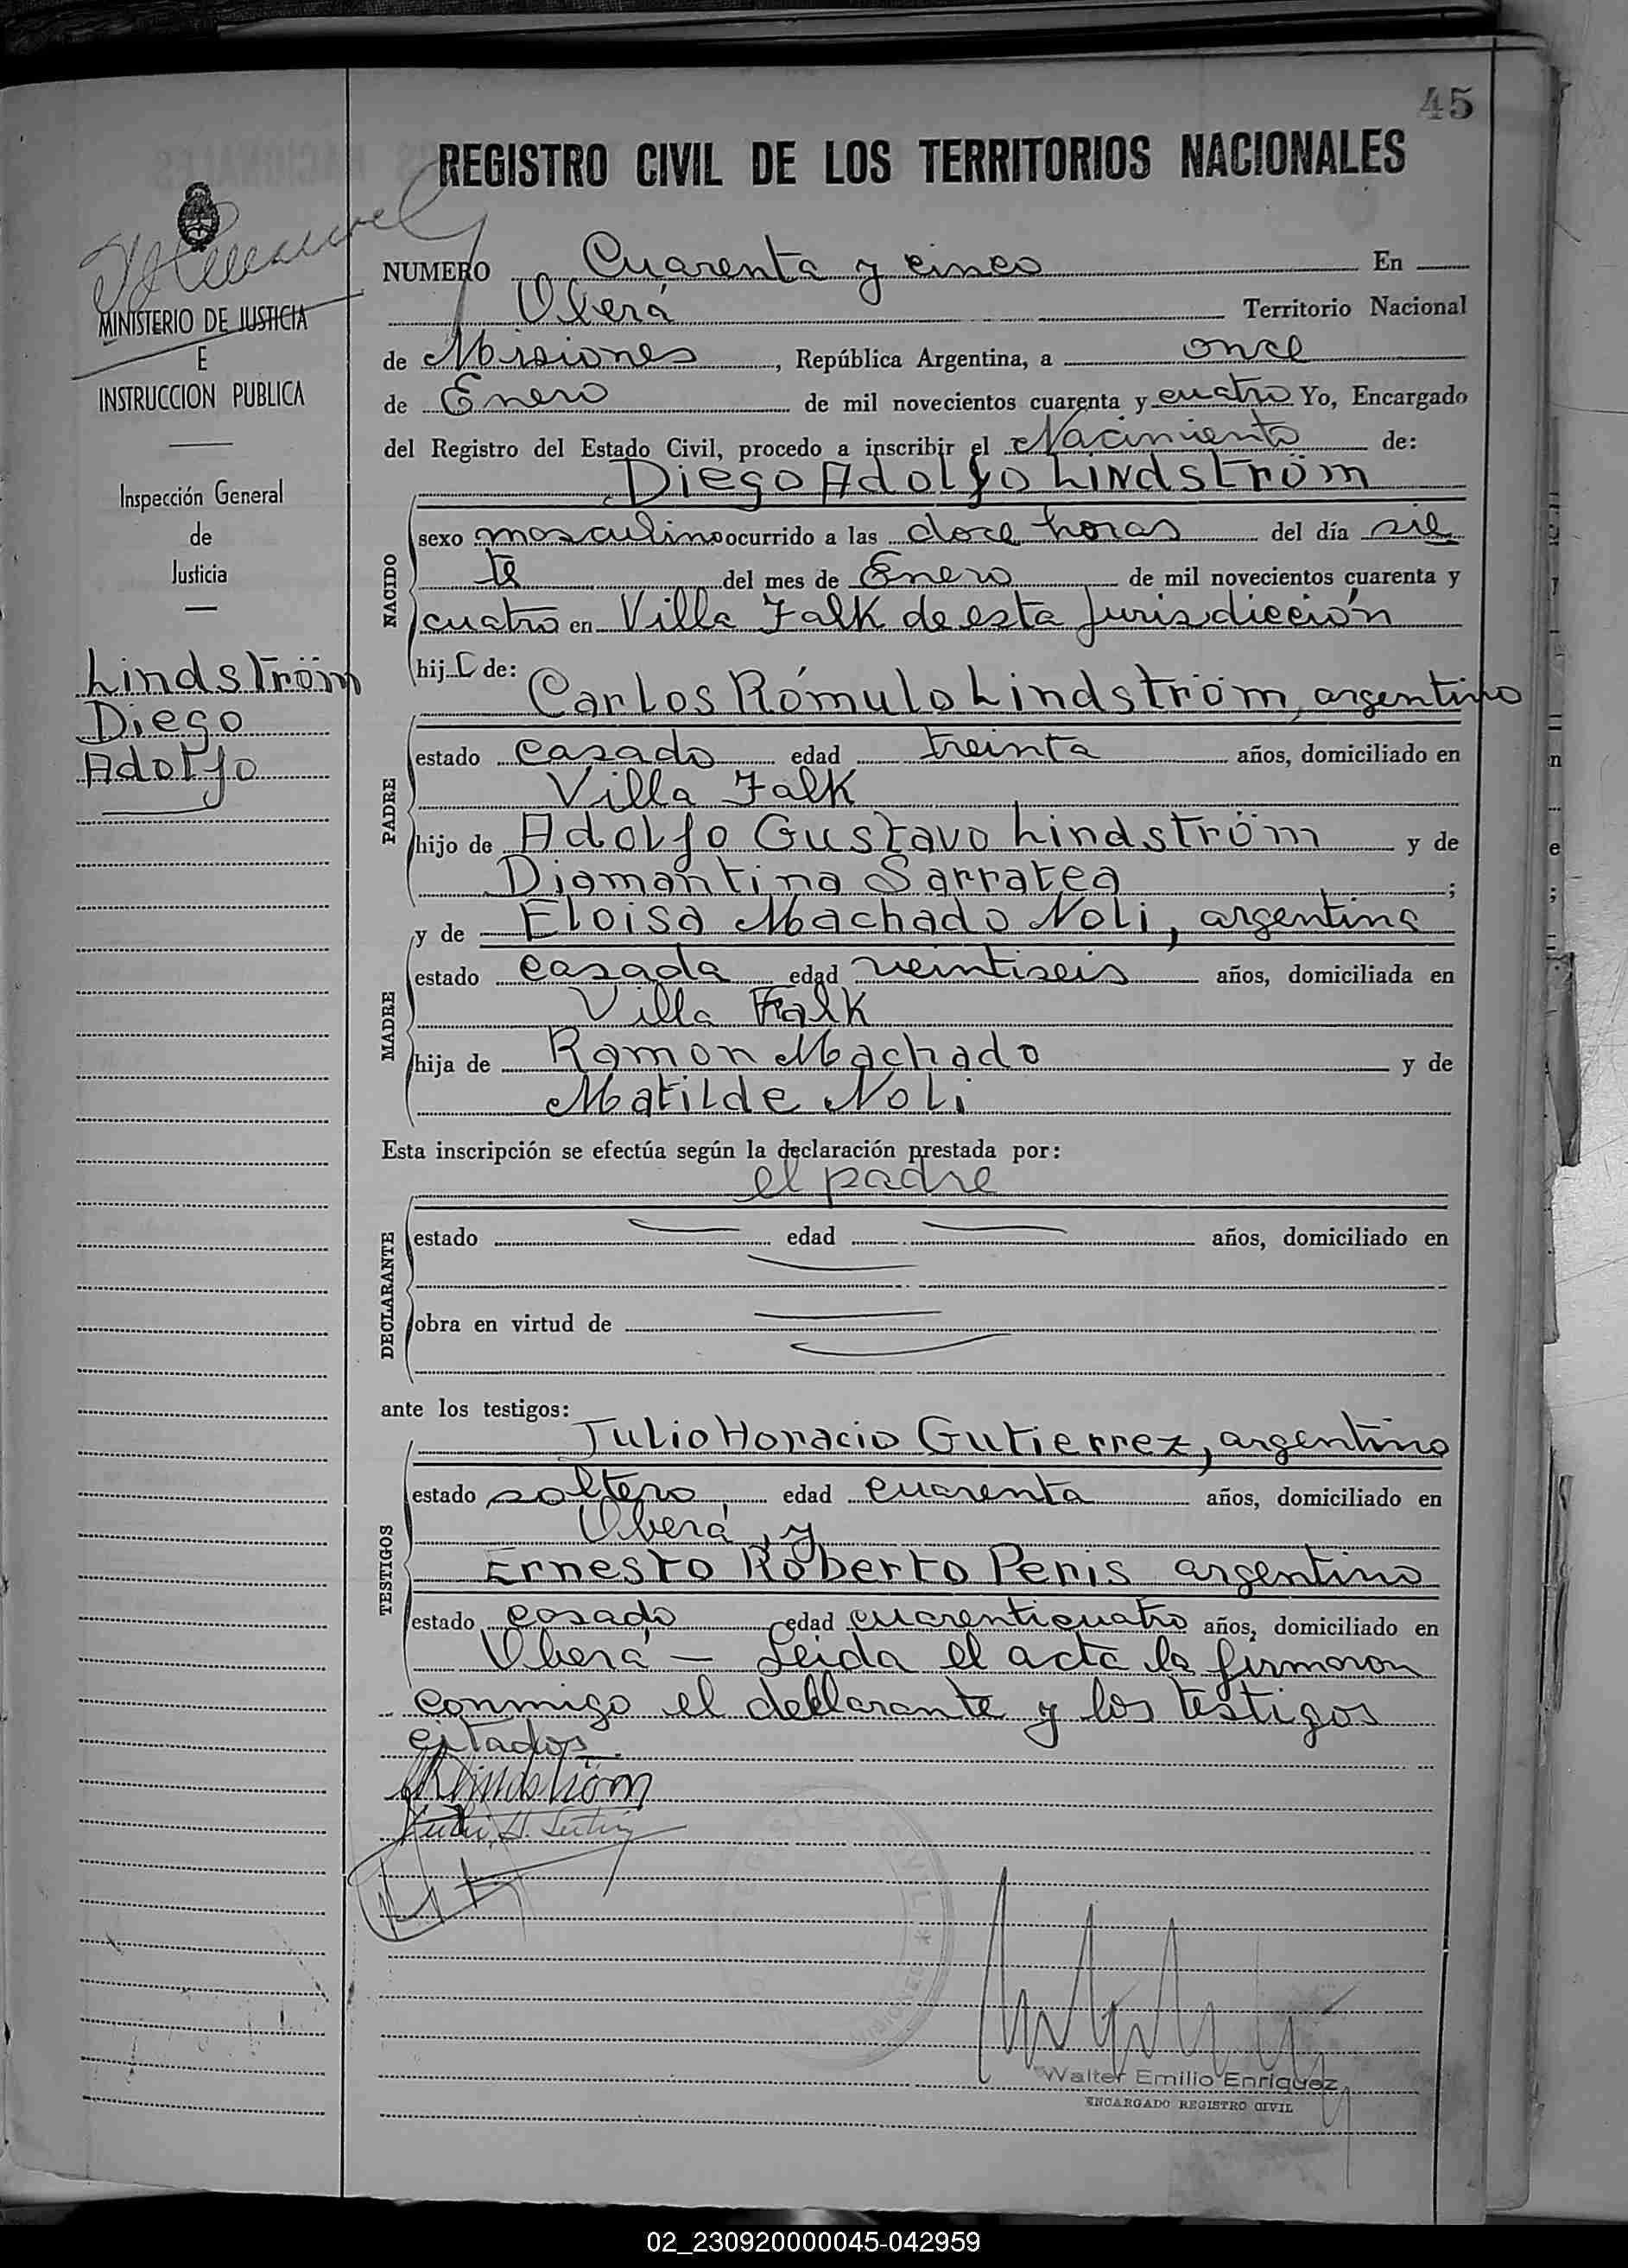 45
REGISTRO CIVIL DE LOS TERRITORIOS NACIONALES
MINISTERIO DE JUSTICIA
E
INSTRUCCION PUBLICA
Inspección General
de
Justicia
Lindström
Diego
Adolfo
NUMERO Cuarenta y cinco En
Oberá Territorio Nacional
de Misiones, República Argentina, a once
de Enero de mil novecientos cuarenta y cuatro Yo, Encargado
del Registro del Estado Civil, procedo a inscribir el Nacimiento de:
Diego Adolfo Lindström
NACIDO
sexo masculino ocurrido a las doce horas del día sie
te del mes de Enero de mil novecientos cuarenta y
cuatro en Villa Falk de esta Jurisdicción
hij o de:
Carlos Rómulo Lindström, argentino
PADRE
estado casado edad treinta años, domiciliado en
Villa Falk
hijo de Adolfo Gustavo Lindström y de
Diamantina Sarratea ;
y de Eloisa Machado Noli, argentina
MADRE
estado casada edad veintiseis años, domiciliada en
Villa Falk
hija de Ramon Machado y de
Matilde Noli
Esta inscripción se efectúa según la declaración prestada por:
el padre
DECLARANTE
estado edad años, domiciliado en
obra en virtud de
ante los testigos:
Julio Horacio Gutierrez, argentino
TESTIGOS
estado soltero, edad cuarenta años, domiciliado en
Oberá, y
Ernesto Roberto Penis argentino
estado casado edad cuarenticuatro años, domiciliado en
Oberá — Leida el acta la firmaron
conmigo el declarante y los testigos
citados
Lindström
Walter Emilio Enriquez
ENCARGADO REGISTRO CIVIL
02_230920000045-042959